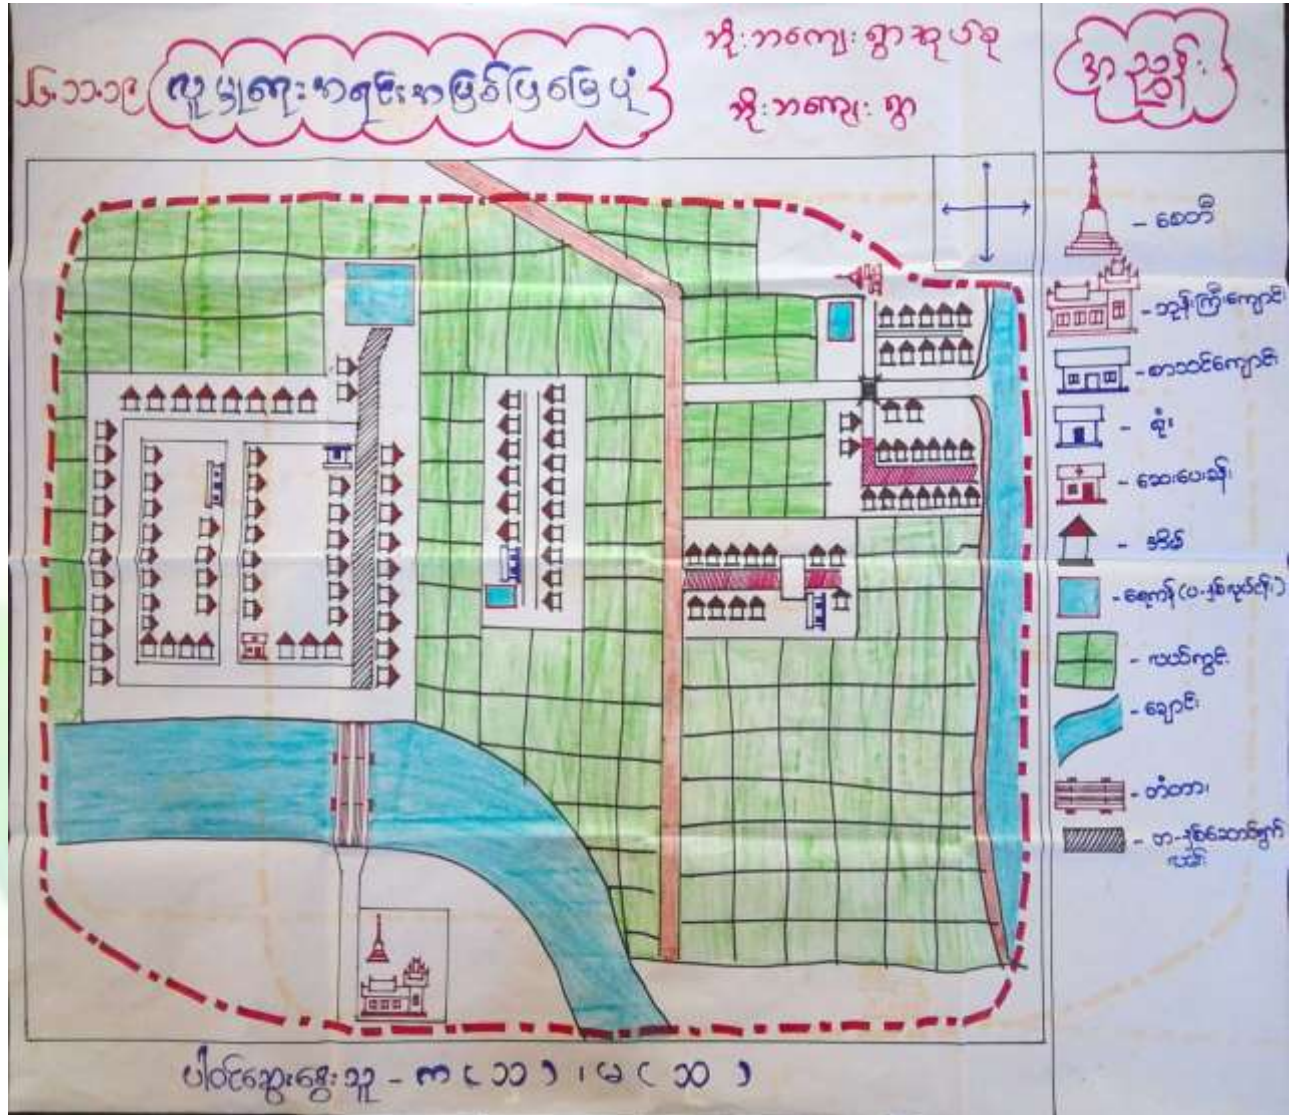 ၂၆.၁၁.၁၉
လူမှုရေးအရင်းအမြစ်ပြမြေပုံ
ဘိုးဘကျေးရွာအုပ်စု
ဘိုးဘကျေးရွာ
အညွှန်း
- စေတီ
- ဘုန်းကြီးကျောင်း
- စာသင်ကျောင်း
- ရုံး
- ဆေးပေးခန်း
- အိမ်
- ရေကန် (ပ-နှစ်လုပ်ငန်း)
- လယ်ကွင်း
- ချောင်း
- တံတား
- တ-နှစ်ဆောင်ရွက်
လမ်း
ပါဝင်ဆွေးနွေးသူ - ကျ (၁၁) ၊ မ (၁၀)